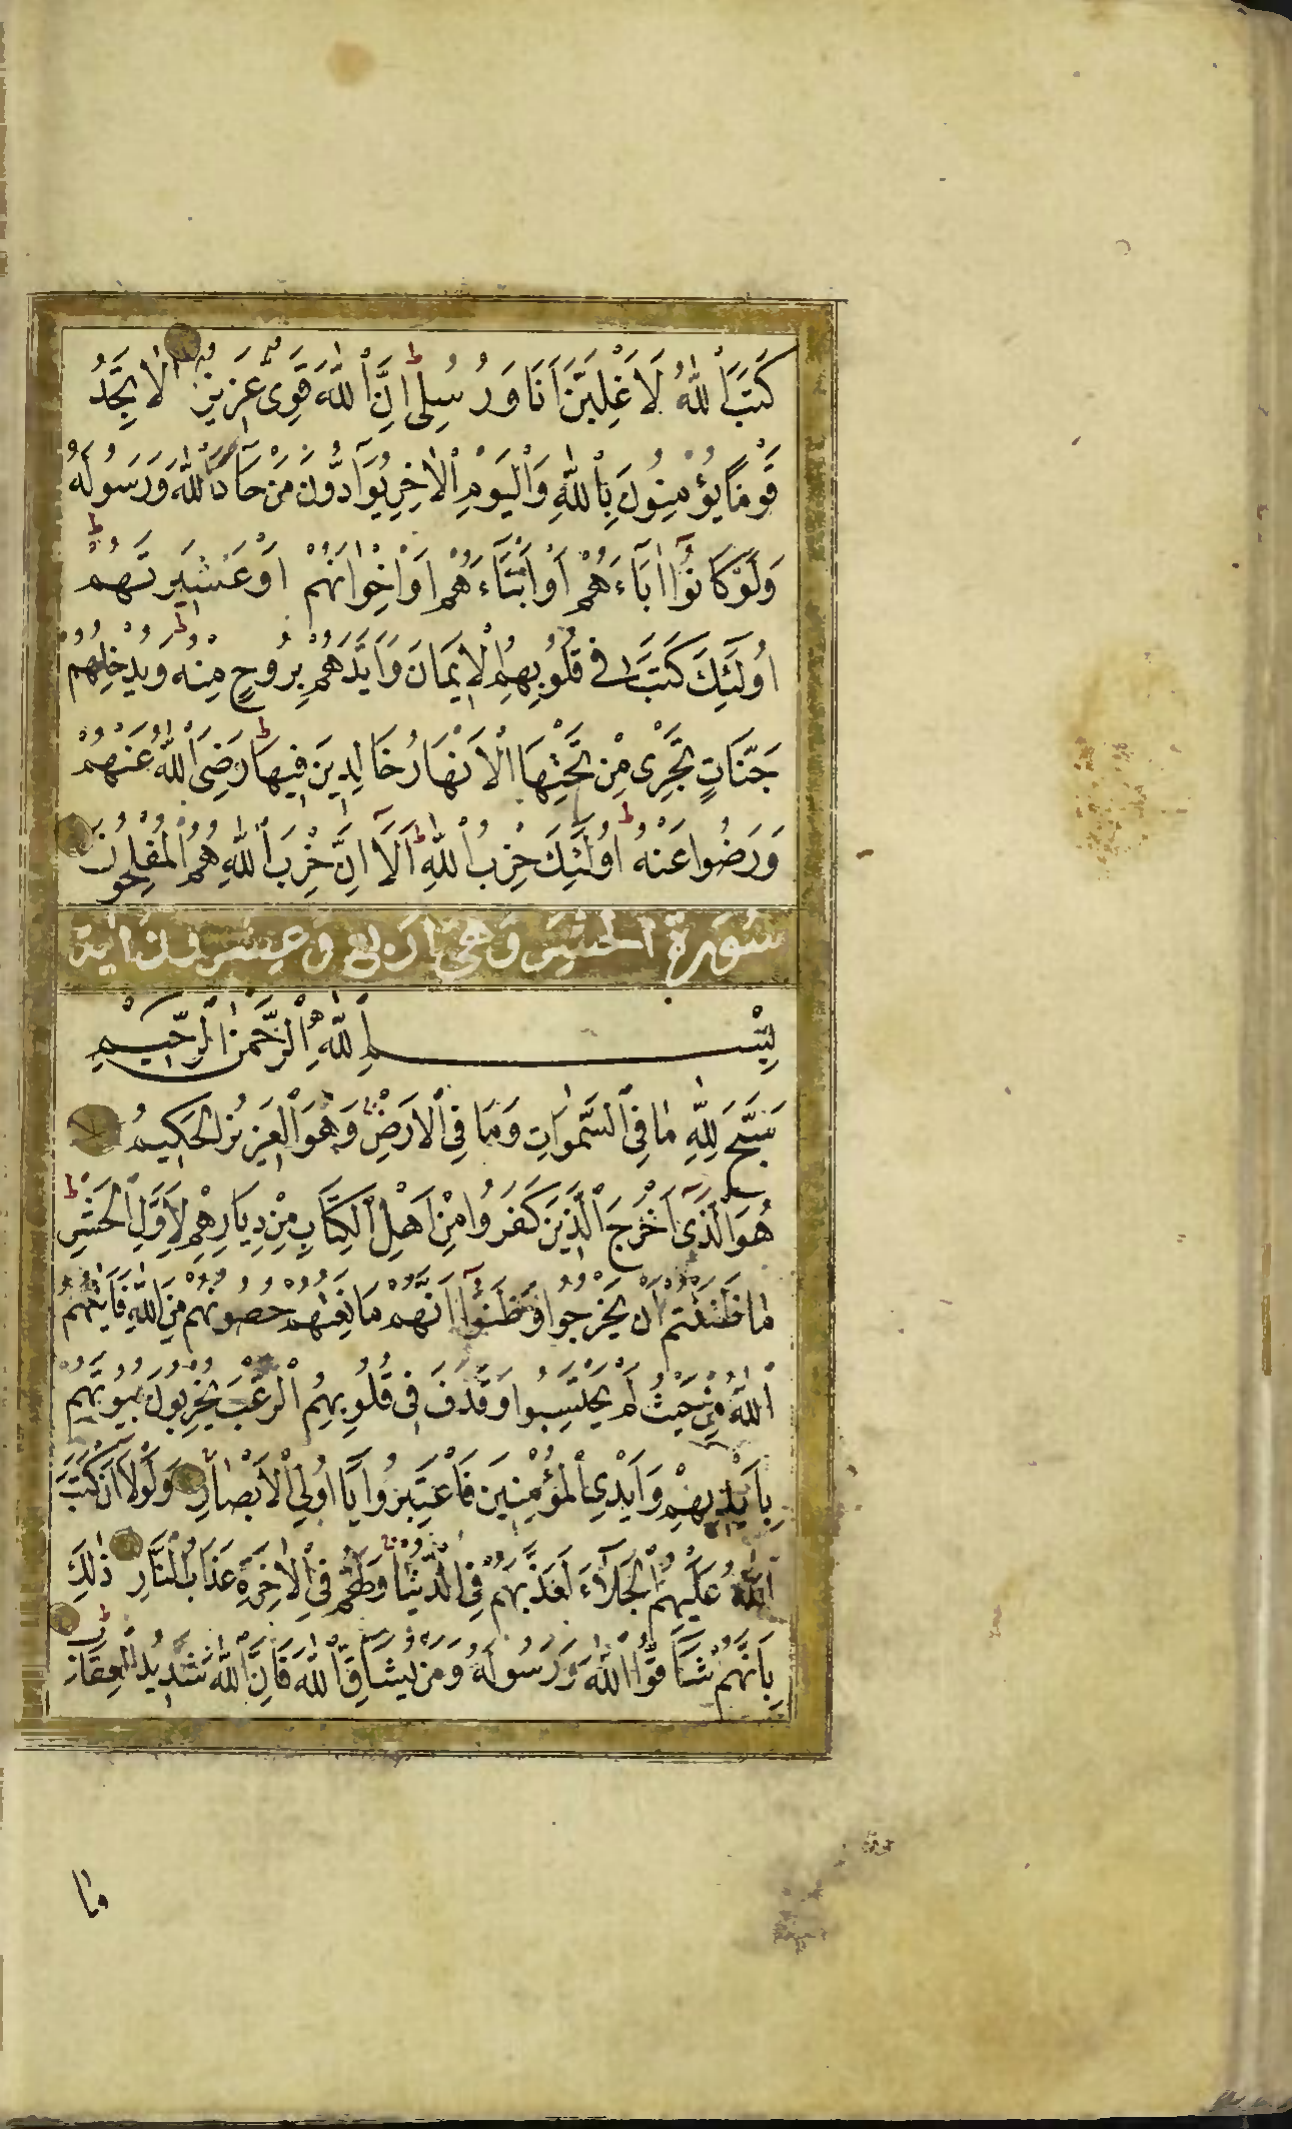 كَتَبَ ٱللّٰهُ لَاَغْلِبَنَّ اَنَا وَرُسُلِى ط اِنَّ ٱللّٰهَ قَوِىٌّ عَزِيزٌ لَا تَجِدُ
قَوْمًا يُؤْمِنُونَ بِٱللّٰهِ وَٱلْيَوْمِ ٱلْاٰخِرِ يُوَآدُّونَ مَنْ حَآدَّ ٱللّٰهَ وَرَسُولَهُ
وَلَوْ كَانُوٓا اٰبَآءَهُمْ اَوْ اَبْنَآءَهُمْ اَوْ اِخْوٰانَهُمْ اَوْ عَشِيرَتَهُمْ ط
اُولٰٓئِكَ كَتَبَ فِى قُلُوبِهِمُ ٱلْاِيمَانَ وَاَيَّدَهُمْ بِرُوحٍ مِنْهُ ط وَيُدْخِلُهُمْ
جَنَّاتٍ تَجْرِى مِنْ تَحْتِهَا ٱلْاَنْهَارُ خَالِدِينَ فِيهَا ط رَضِىَ ٱللّٰهُ عَنْهُمْ
وَرَضُوا عَنْهُ ط اُولٰٓئِكَ حِزْبُ ٱللّٰهِ ط اَلَآ اِنَّ حِزْبَ ٱللّٰهِ هُمُ ٱلْمُفْلِحُونَ
سُورَة الحشر وَهِىَ اربع وعشرون اية
بِسْمِ ٱللّٰهِ ٱلرَّحْمٰنِ ٱلرَّحِيمِ
سَبَّحَ لِلّٰهِ مَا فِى ٱلسَّمٰوَاتِ وَمَا فِى ٱلْاَرْضِ وَهُوَ ٱلْعَزِيزُ ٱلْحَكِيمُ
هُوَ ٱلَّذِىٓ اَخْرَجَ ٱلَّذِينَ كَفَرُوا مِنْ اَهْلِ ٱلْكِتَابِ مِنْ دِيَارِهِمْ لِاَوَّلِ ٱلْحَشْرِ ط
مَا ظَنَنْتُمْ اَنْ يَخْرُجُوا وَظَنُّوٓا اَنَّهُمْ مَانِعَتُهُمْ حُصُونُهُمْ مِنَ ٱللّٰهِ فَاَتٰيهُمُ
ٱللّٰهُ مِنْ حَيْثُ لَمْ يَحْتَسِبُوا وَقَذَفَ فِى قُلُوبِهِمُ ٱلرُّعْبَ يُخْرِبُونَ بُيُوتَهُمْ
بِاَيْدِيهِمْ وَاَيْدِى ٱلْمُؤْمِنِينَ فَٱعْتَبِرُوا يَٓا اُولِى ٱلْاَبْصَارِ وَلَوْلَآ اَنْ كَتَبَ
ٱللّٰهُ عَلَيْهِمُ ٱلْجَلَآءَ لَعَذَّبَهُمْ فِى ٱلدُّنْيَا وَلَهُمْ فِى ٱلْاٰخِرَةِ عَذَابُ ٱلنَّارِ ذٰلِكَ
بِاَنَّهُمْ شَآقُّوا ٱللّٰهَ وَرَسُولَهُ وَمَنْ يُشَآقِّ ٱللّٰهَ فَاِنَّ ٱللّٰهَ شَدِيدُ ٱلْعِقَابِ
ما